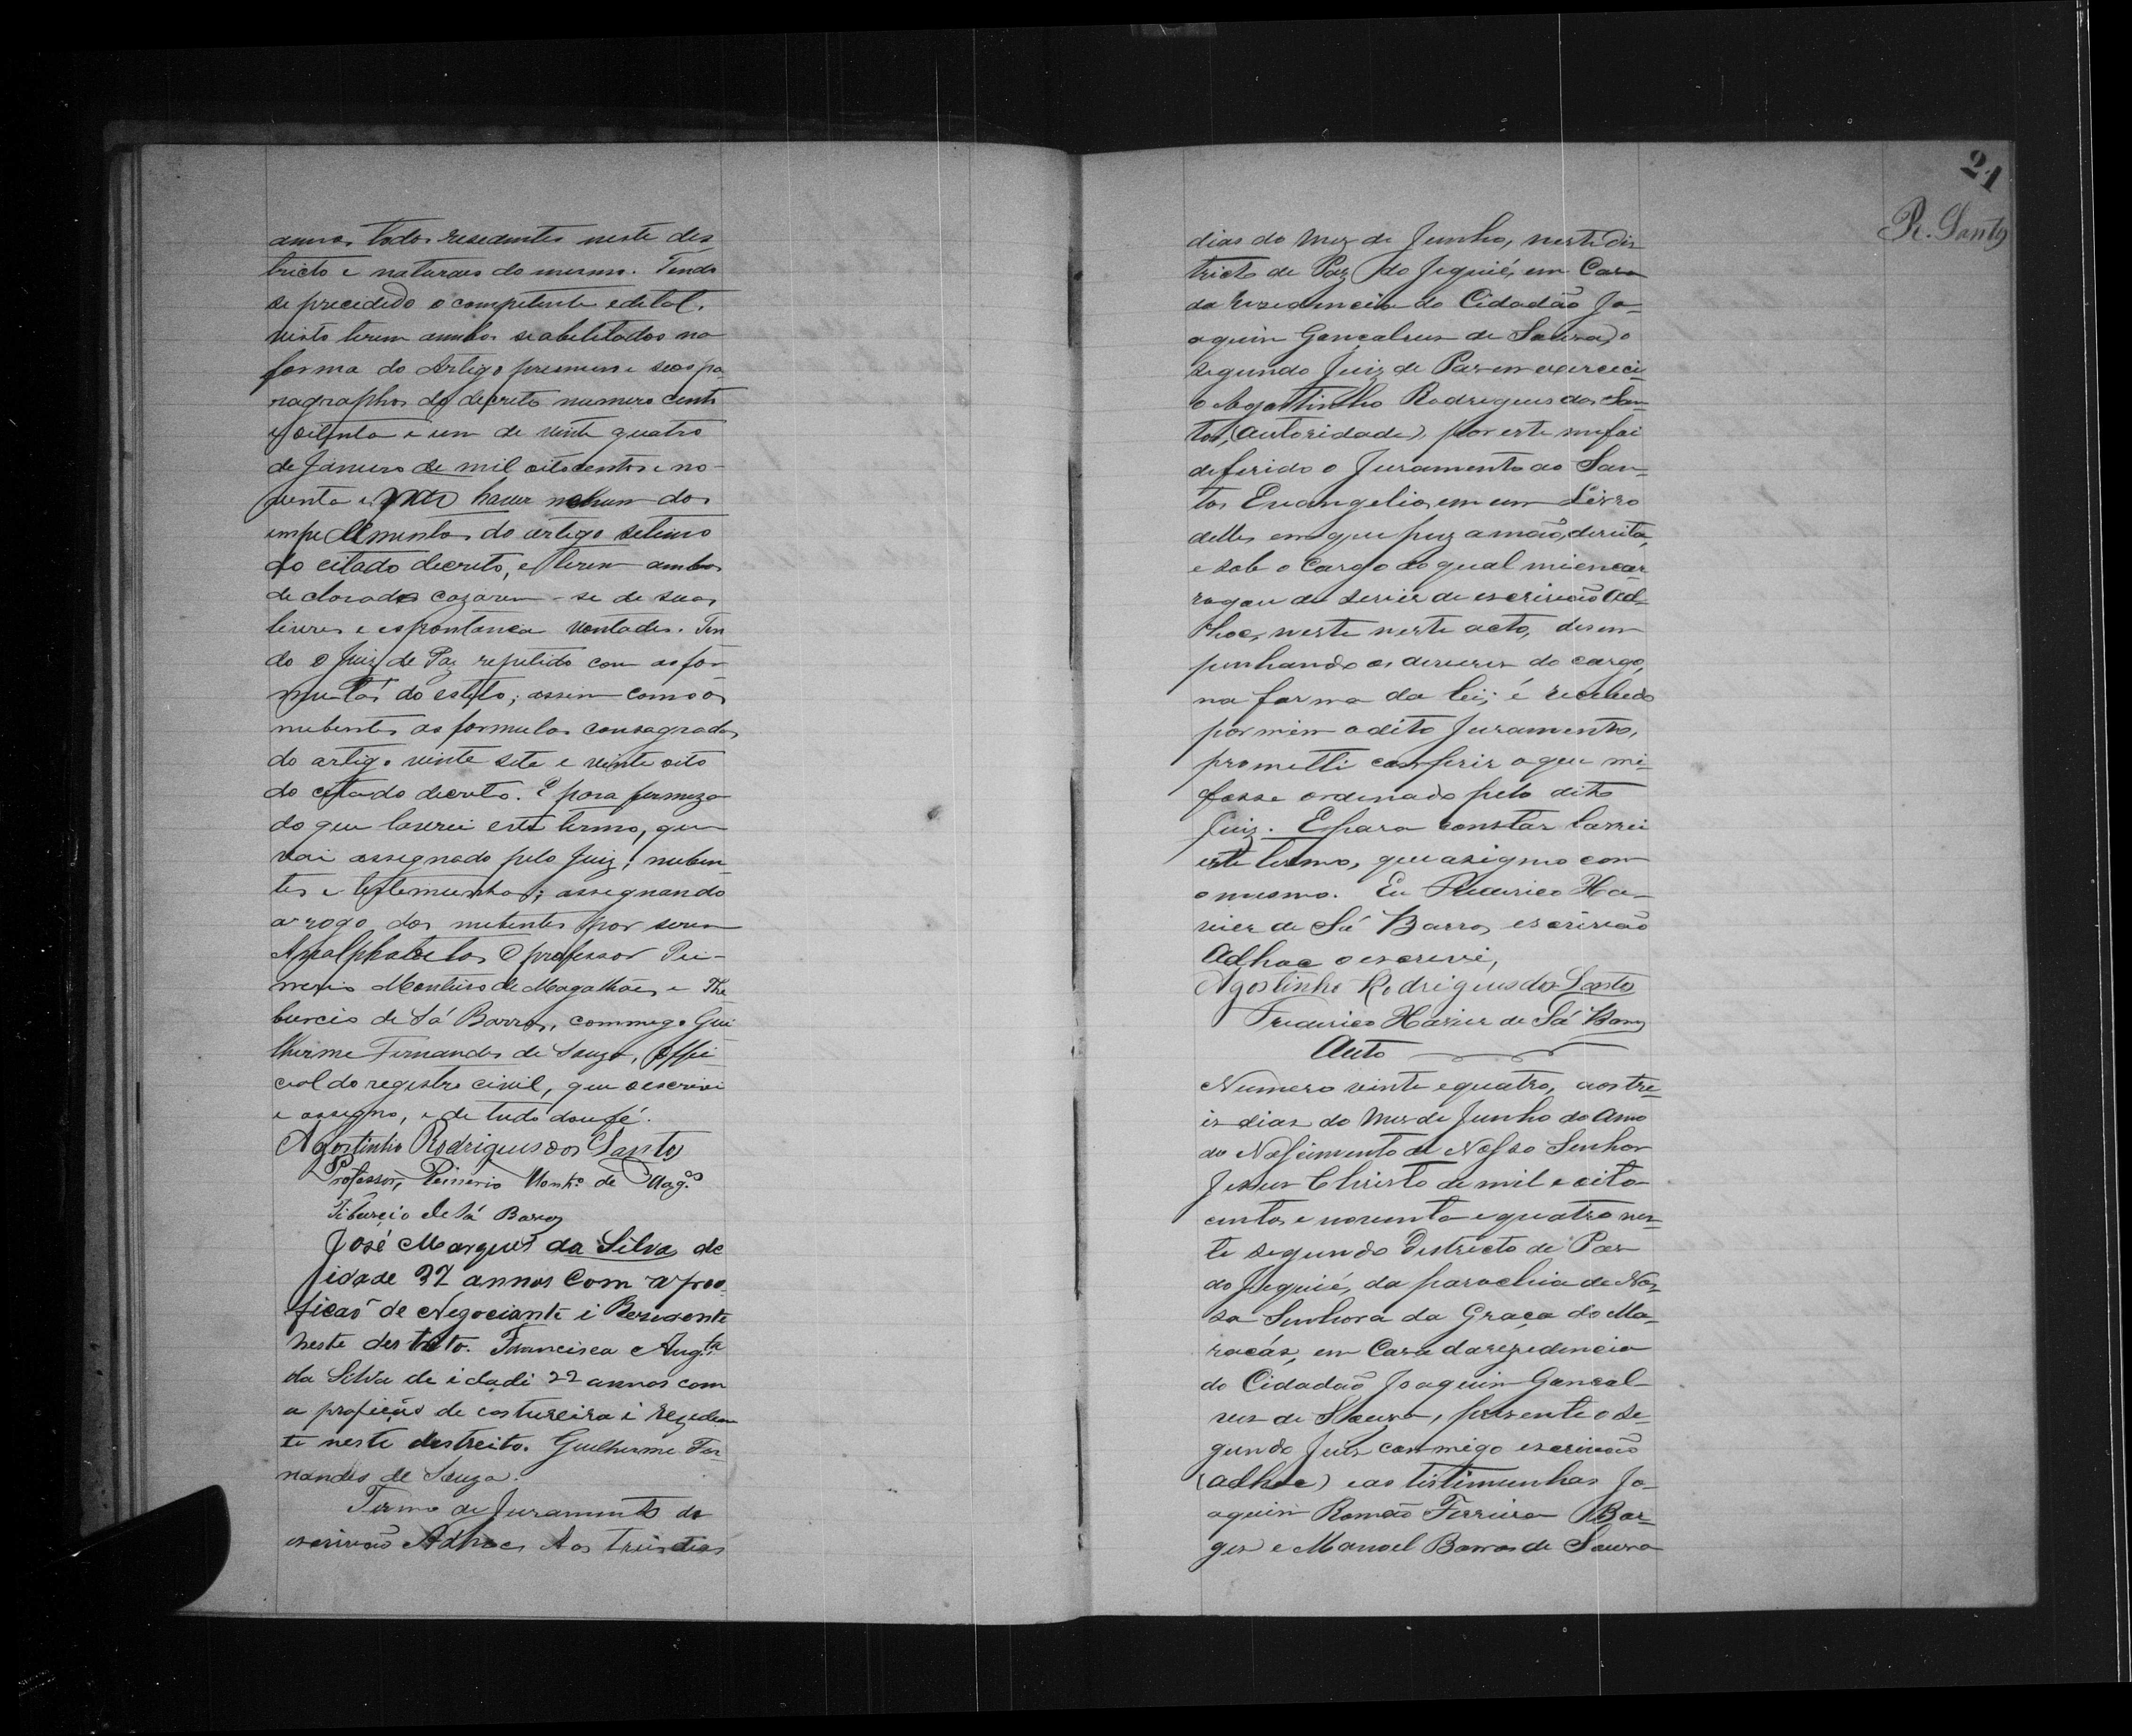 annos todos resedentes neste des
tricto e naturaes do mesmo. Tendo
se precedido o competente edetal,
visto terem ambos seabeletados na
forma do Artigo premeero e seos pa-
ragraphos do decreto numero cento
e oitenta e um de vinte quatro
de Janeiro de mil oitocentos e no-
venta e não haver nehum dos
impedimentos do artigo setimo
do citado decreto, e terem ambos
declarados cazarem-se de suas
livres e espontanea vontades. Ten
do o Juiz de Paz repetido com as for
mulas do estilo; assim como os
nubentes as formulas consagradas
do artigo vinte sete e vinte oito
do citado decreto. E para fermeza
do que lavrei este termo, que
vai assegnado pelo Juiz, nuben-
tes e testemunhas; assegnando
arogo dos nubentes por serem
Analphabetos O professor Pei-
nerio Monteiro de Magalhães e The
burcio de Sá Barros, commego Gui
lherme Fernandes de Souza, Offi
cial do registro civil, que o escrivi
e assegno, e de tudo dou fé.
Agostinho Rodrigues dos Santos
Professor, Peinerio Montro de Magos
Tiburcio de Sá Barros
José Marques da Silva de
idade 32 annos Com a pro
ficaõ de Negociante i Resedente
neste destrito. Francisca Augta
da Silva de idadi 22 annos com
a profição de costureira i rezeden
te neste destreito. Guelherme Fer
nandes de Souza.
Termo de Juramento do
escrivaõ Adhoc. Aos treis dias
21
R. Santos
dias do Mez de Junho, neste dis
tricto de Paz do Jequié, em Casa
da rezedencia do Cidadão Jo-
aquim Gonçalves de Souza, o
segundo Juiz de Paz em exercici
o Agostinho Rodrigues dos San-
tos, (autoridade), por este me foi
deferido o Juramento ao San-
tos Evangelios em um Livro
delles em que puz a mão direita,
e sob o Cargo do qual mi encar
regou de servir de escrivão Ad-
hoc, neste neste acto, desem
penhando os deveres do cargo,
na forma da lei; é recebedo
por mim o dito Juramento,
prometti comferir o que mi-
fosse ordenado pelo dito
Juiz. E para constar lavrei
este termo, que asigno com
o mesmo. Eu Frederico Xa-
vier de Sá Barros, escrivão
Adhoc o escrevi,
Agostinho Rodrigues dos Santos
Frederico Xavier de Sá Barros
Auto
Numero vinte e quatro, aos tre-
is dias do Mez de Junho do Anno
do Nascimento de Nosso Senhor
Jesus Christo de mil e oito
centos e noventa e quatro nes-
te segundo Destricto de Paz
do Jequié, da parochia de Nos-
sa Senhora da Graça do Ma-
racás, em Casa da rezedencia
do Cidadão Joaquim Goncal-
ves de Souza, presente o se-
gundo Juiz commigo escrivão
(adhoc) e as testimunhas Jo-
aquim Romão Ferreira Bor-
ges e Manoel Barros de Souza